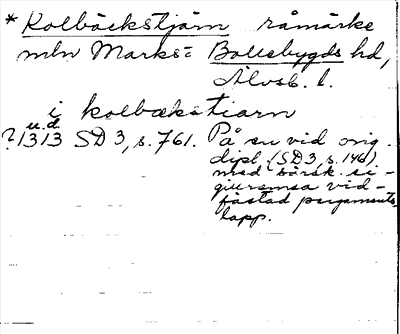 * Kolbäckstjärn råmärke
mln Marks= Bollebygds hd,
Älvsb. l.
i kolbækstiarn
u.d.
? 1313 SD 3, s. 761. På en vid orig.
dipl. (SD 3, s. 146)
med särsk. si-
gillremsa vid-
fästad pergaments
lapp.